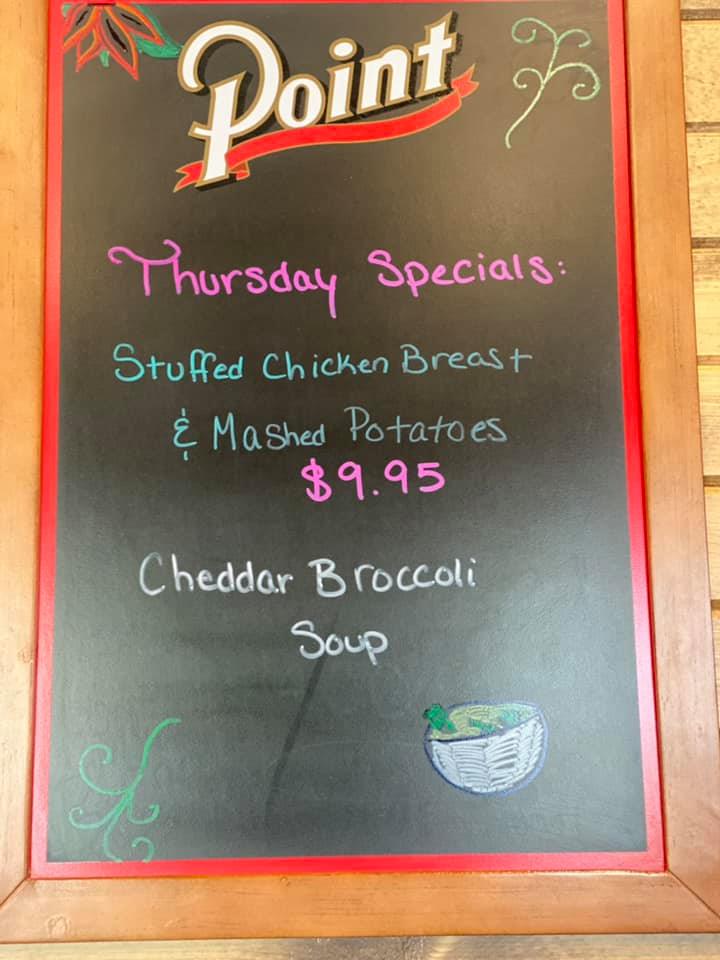 Point
Thursday Specials:
Stuffed Chicken Breast
& Mashed Potatoes
$9.95
Cheddar Broccoli
Soup